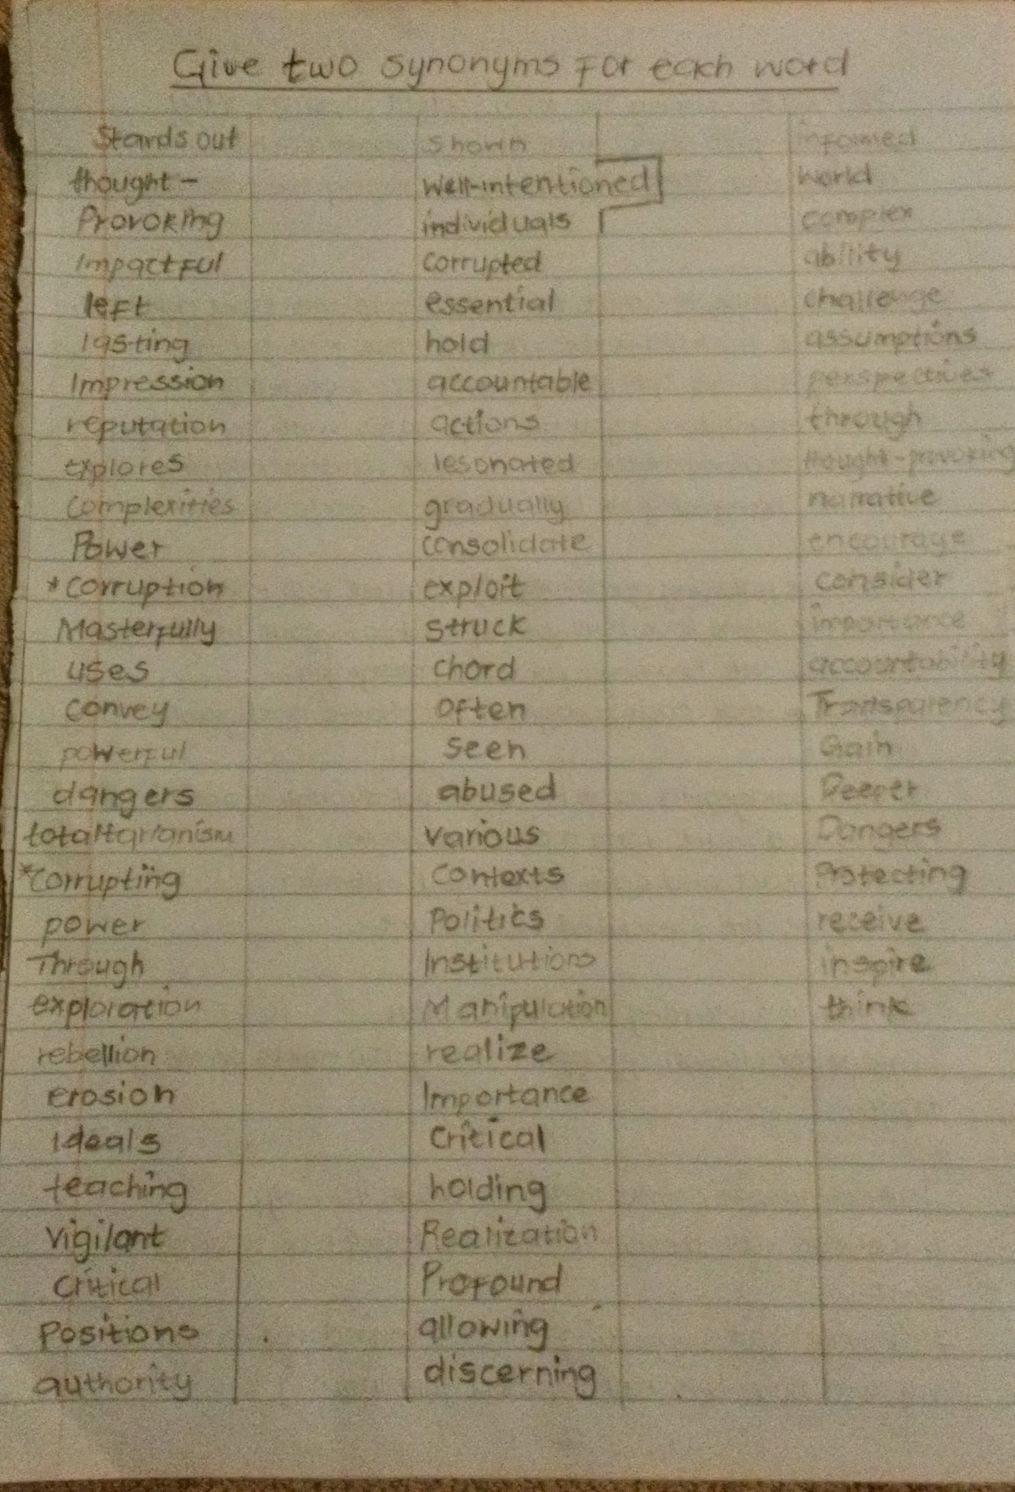 Give two synonyms for each word
Stands out
thought-
Provoking
Impactful
left
lasting
Impression
reputation
explores
Complexities
Power
*Corruption
Masterfully
uses
Convey
powerful
dangers
totaltarianism
*Corrupting
power
Through
exploration
rebellion
erosion
Ideals
teaching
Vigilant
Critical
Positions
authority
Shown
Well-intentioned
individuals
Corrupted
essential
hold
accountable
actions
resonated
gradually
Consolidate
exploit
Struck
Chord
Often
Seen
abused
Various
Contexts
Politics
Institutions
Manipulation
realize
Importance
Critical
holding
Realization
Profound
allowing
discerning
informed
World
Complex
ability
Challenge
assumptions
perspectives
through
thought-provoking
narrative
encourage
Consider
importance
accountability
Transparency
Gain
Deeper
Dangers
Protecting
receive
inspire
think